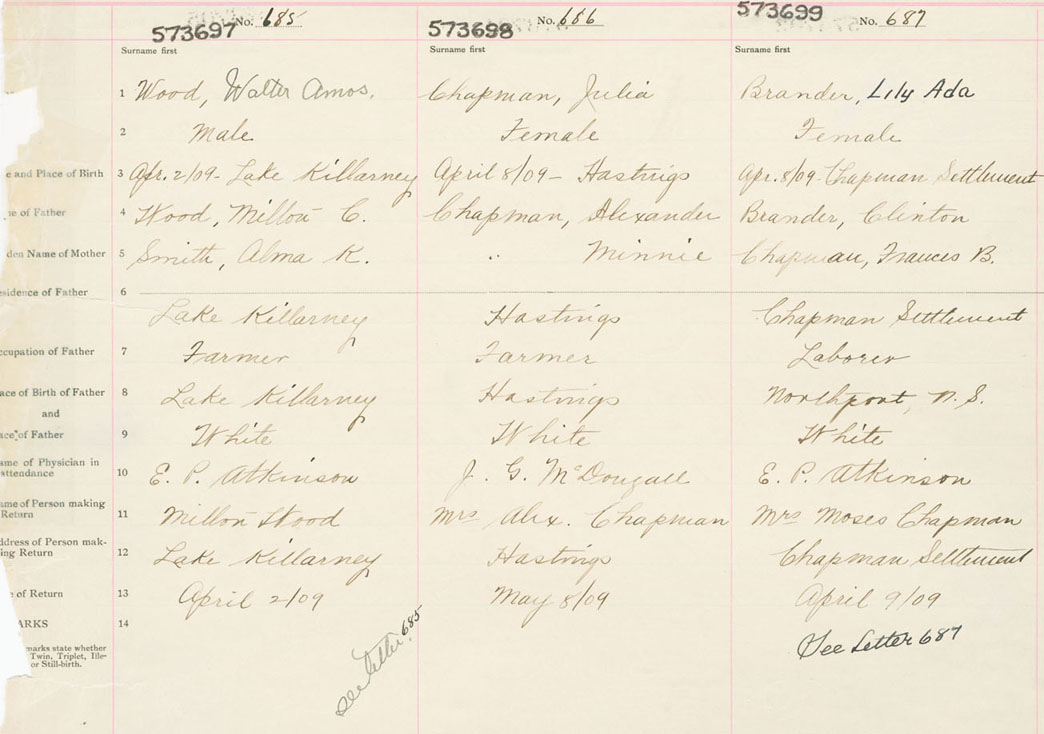 573697 No. 685 573698 No. 686 573699 No. 687
Surname first Surname first Surname first
1 Wood, Walter Amos. Chapman, Julia Brander, Lily Ada
2 Male Female Female
e and Place of Birth 3 Apr. 2/09- Lake Killarney April 8/09- Hastings Apr. 8/09- Chapman Settlement
e of Father 4 Wood, C. Chapman, Alexander Brander, Clinton
den Name of Mother 5 Smith, Alma K. " Minnie Chapman, Frances B.
esidence of Father 6
Lake Killarney Hastings Chapman Settlement
ccupation of Father 7 Farmer Farmer Laborer
ace of Birth of Father 8 Lake Killarney Hastings Northport, N.S.
and
ace of Father 9 White White White
ame of Physician in
ttendance 10 E. P. Atkinson J. G. McDougall E. P. Atkinson
ame of Person making
Return 11 Wood Mrs Alex. Chapman Mrs Moses Chapman
ddress of Person mak-
ing Return 12 Lake Killarney Hastings Chapman Settlement
e of Return 13 April 2/09 May 8/09 April 9/09
ARKS 14
marks state whether
Twin, Triplet, Ille-
or Still-birth.
see letter 685 See Letter 687